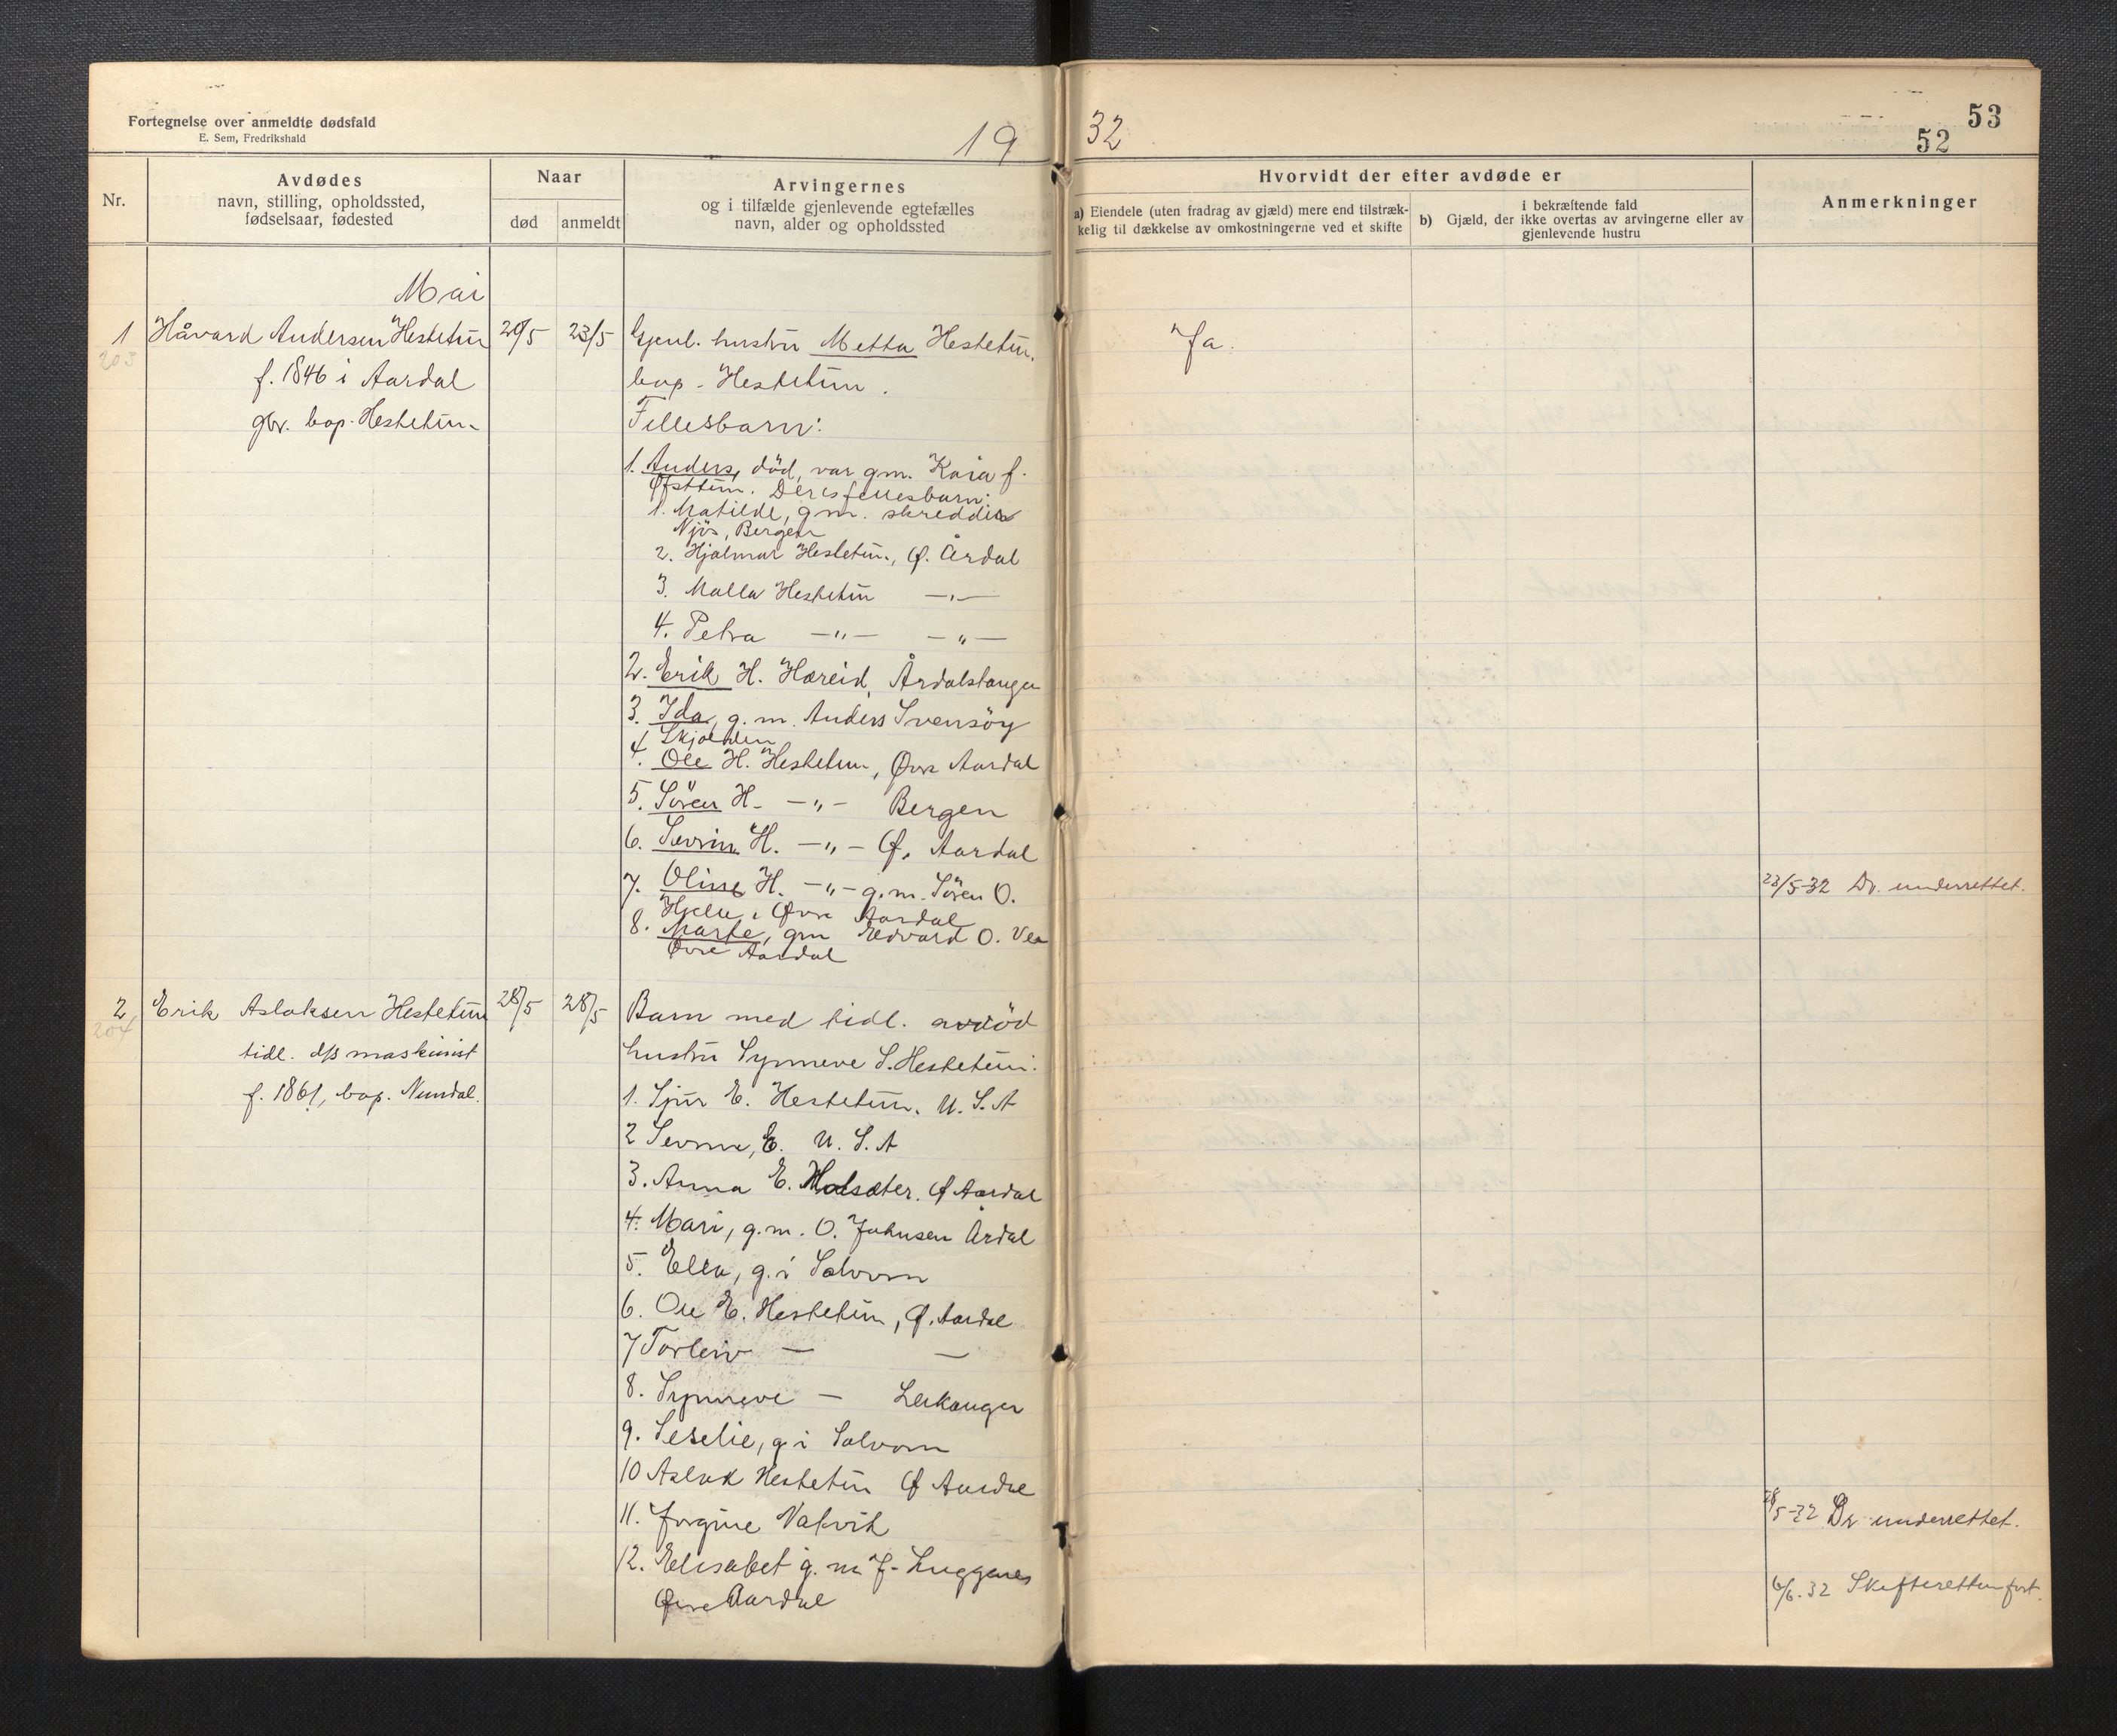 Fortegnelse over anmeldte dødsfald
E. Sem, Fredrikshald
19
32
53
52
Nr.
Avdødes
navn, stilling, opholdssted,
fødselsaar, fødested
Naar
død
anmeldt
Arvingernes
og i tilfælde gjenlevende egtefælles
navn, alder og opholdssted
Hvorvidt der efter avdøde er
a) Eiendele (uten fradrag av gjæld) mere end tilstræk-
kelig til dækkelse av omkostningerne ved et skifte
i bekræftende fald
b) Gjæld, der ikke overtas av arvingerne eller av
gjenlevende hustru
Anmerkninger
Mai
1
203
Håvard Andersen Hestetun
f. 1846 i Aardal
gbr. bop. Hestetun
20/5
23/5
Gjenl. hustru Metta Hestetun,
bop. Hestetun.
Fellesbarn:
1. Anders, død, var g.m. Kaia f.
Øfsttun. Deres fellesbarn:
1. Matilde, g.m. skredder
Njøs, Bergen
2. Hjalmar Hestetun, Ø. Årdal
3. Malla Hestetun —"—
4. Petra —"— —"—
2. Erik H. Hæreid, Årdalstangen
3. Ida, g.m. Anders Svensøy
Skjolden
4. Ole H. Hestetun, Øvre Aardal
5. Søren H. —"— Bergen
6. Sevrin H. —"— Ø. Aardal
7. Oline H. —"— g.m. Søren O.
Hjelle i Øvre Aardal
8. Marte, gm Edvard O. Vee
Øvre Aardal
Ja.
23/5-32 Dr. underrettet.
2
204
Erik Aslaksen Hestetun
tidl. d/s maskinist
f. 1861, bop. Nundal.
28/5
28/5
Barn med tidl. avdød
hustru Synneve S. Hestetun:
1. Sjur E. Hestetun, U.S.A
2 Sevrine, E. U.S.A
3. Anna E. Holsæter. Ø Aardal
4. Mari, g.m. O. Johnsen Årdal
5. Ella, g. i Solvorn
6. Ole E. Hestetun, Ø. Aardal
7 Torleiv — —
8. Synneve — Leikanger
9. Seselie, g. i Solvorn
10 Aslak Hestetun Ø Aardal
11. Jorgine
12. Elisabet g. m J.
Øvre Aardal
28/5-32 Dr underrettet.
6/6.32 Skifteretten fort.